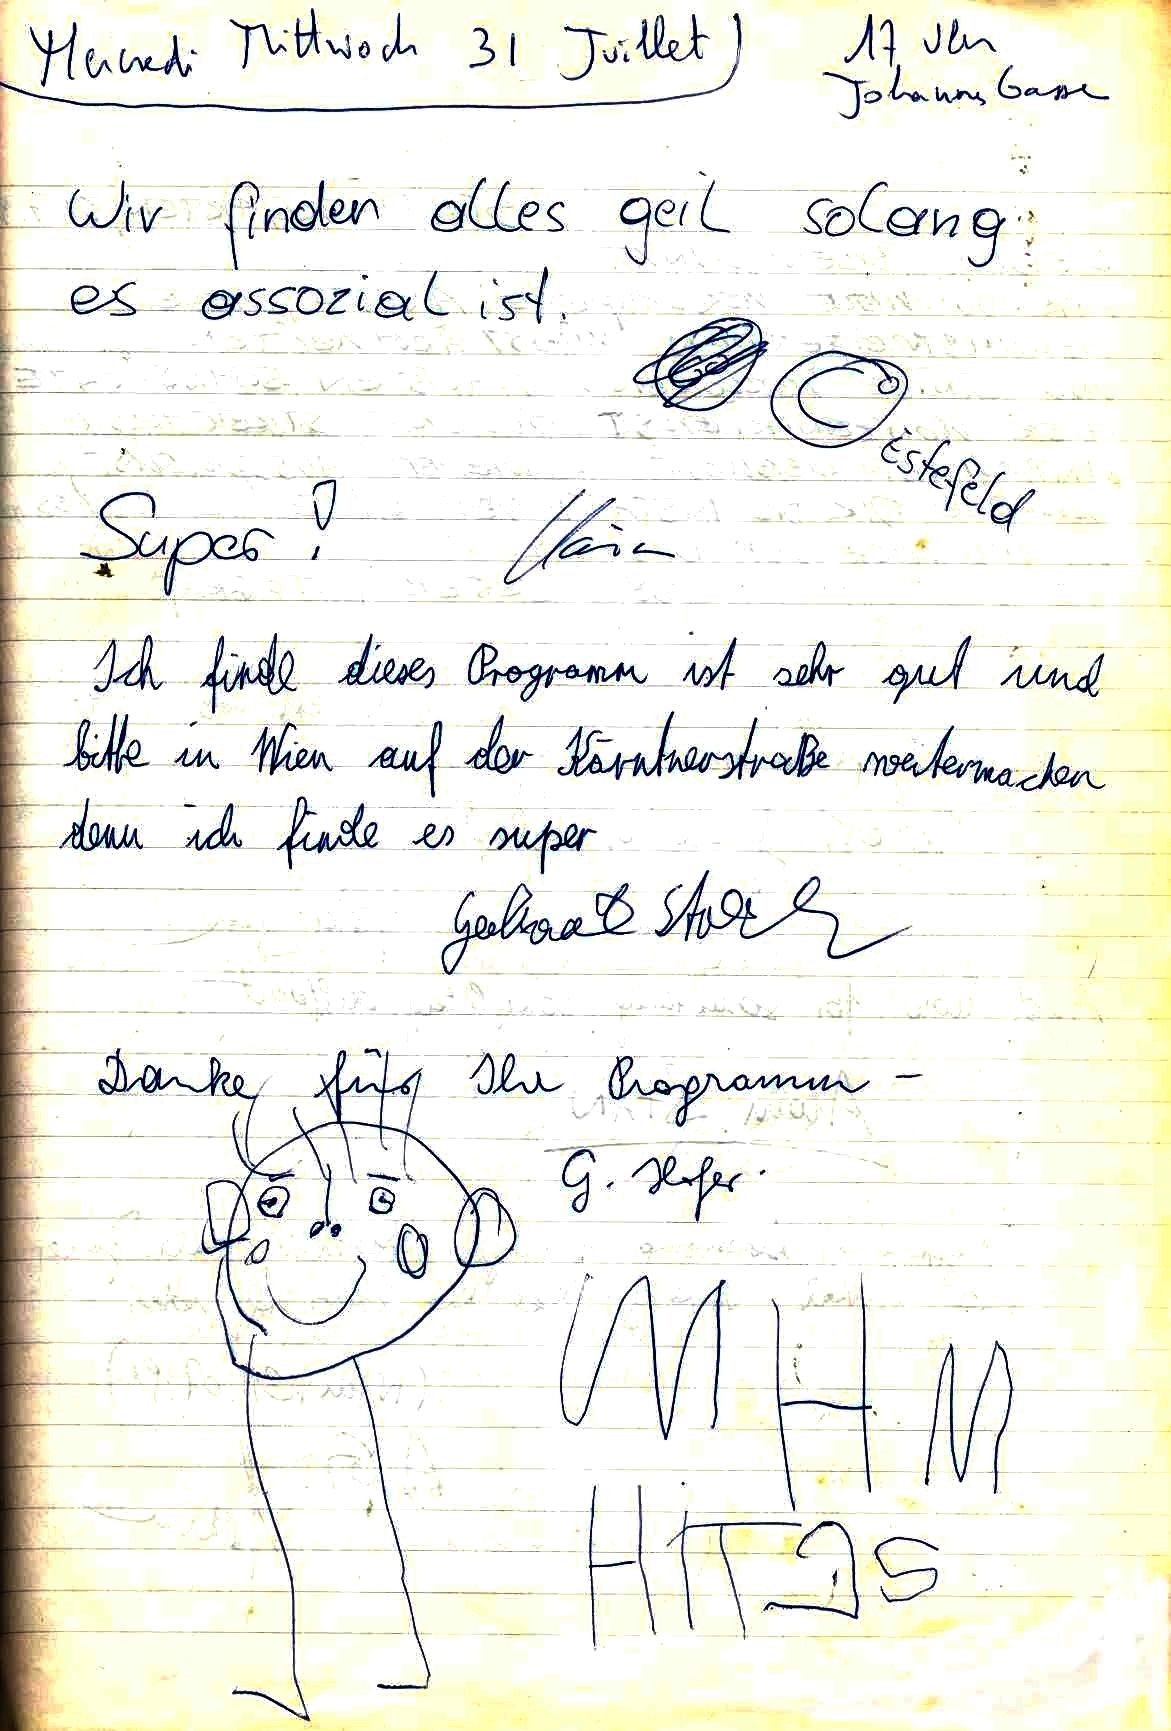 Mercredi Mittwoch 31 Juillet) 17 Uhr
Johannes Gasse
Wir finden alles geil solang
es assozial ist.
Estefeld
Super!
Ich finde dieses Programm ist sehr gut und
bitte in Wien auf der Kärntnerstraße weitermachen
denn ich finde es super
Danke für Ihr Programm –
G. Hofer.
MHM